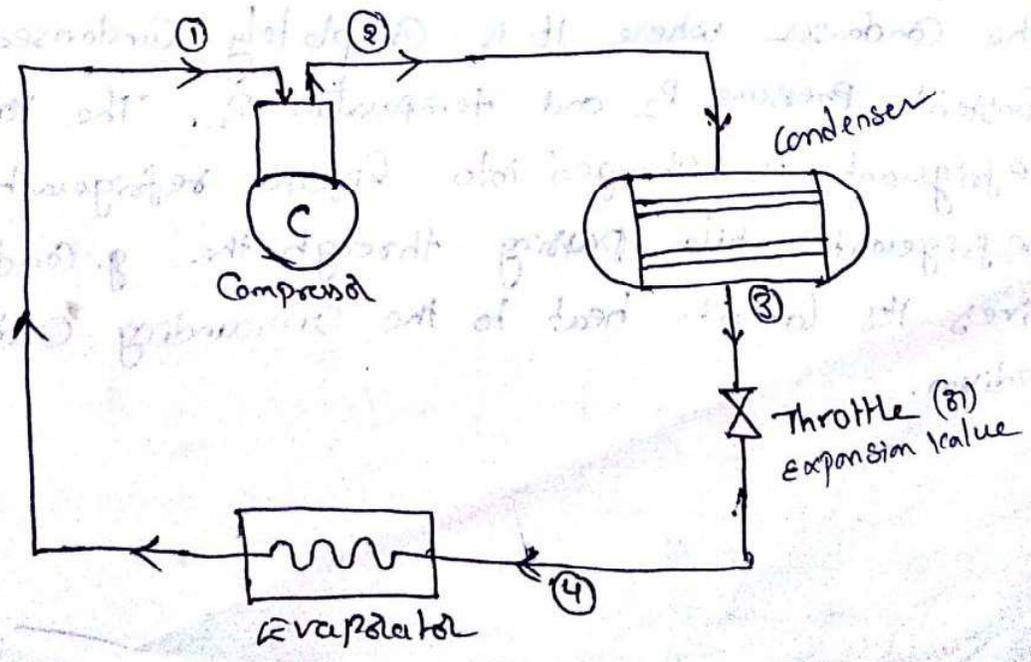 ①
②
Condenser
C
Compressor
③
Throttle (or)
Expansion Valve
④
Evaporator